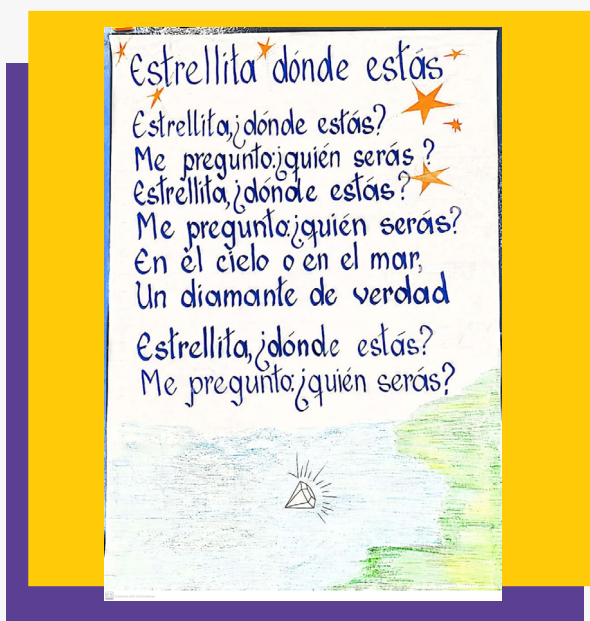 Estrellita dónde estás
Estrellita,¿dónde estás?
Me pregunto:¿quién serás?
Estrellita,¿dónde estás?
Me pregunto:¿quién serás?
En el cielo o en el mar,
Un diamante de verdad
Estrellita,¿dónde estás?
Me pregunto:¿quién serás?